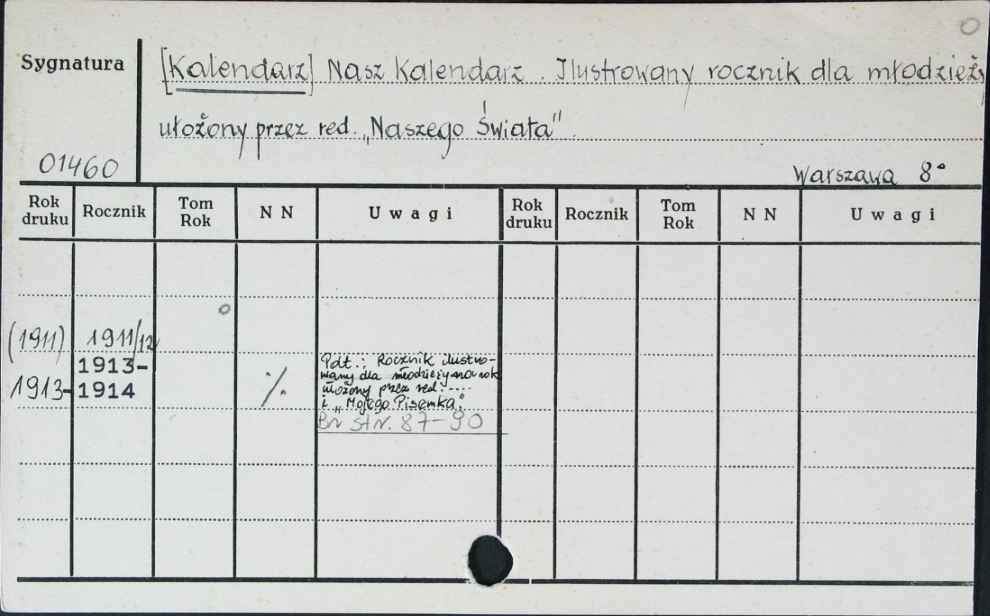 O
Sygnatura
[Kalendarz] Nasz Kalendarz. Ilustrowany rocznik dla młodzieży
ułożony przez red. „Naszego Świata".
01460
Warszawa 8°
Rok druku Rocznik Tom Rok N N Uwagi Rok druku Rocznik Tom Rok N N Uwagi
(1911) 1911/12
1913- 1913-1914 %
Pdt.: Rocznik ilustro-
wany dla młodzieży na rok
ułożony przez red. ....
i „Mojego Pisemka".
Br str. 87-90